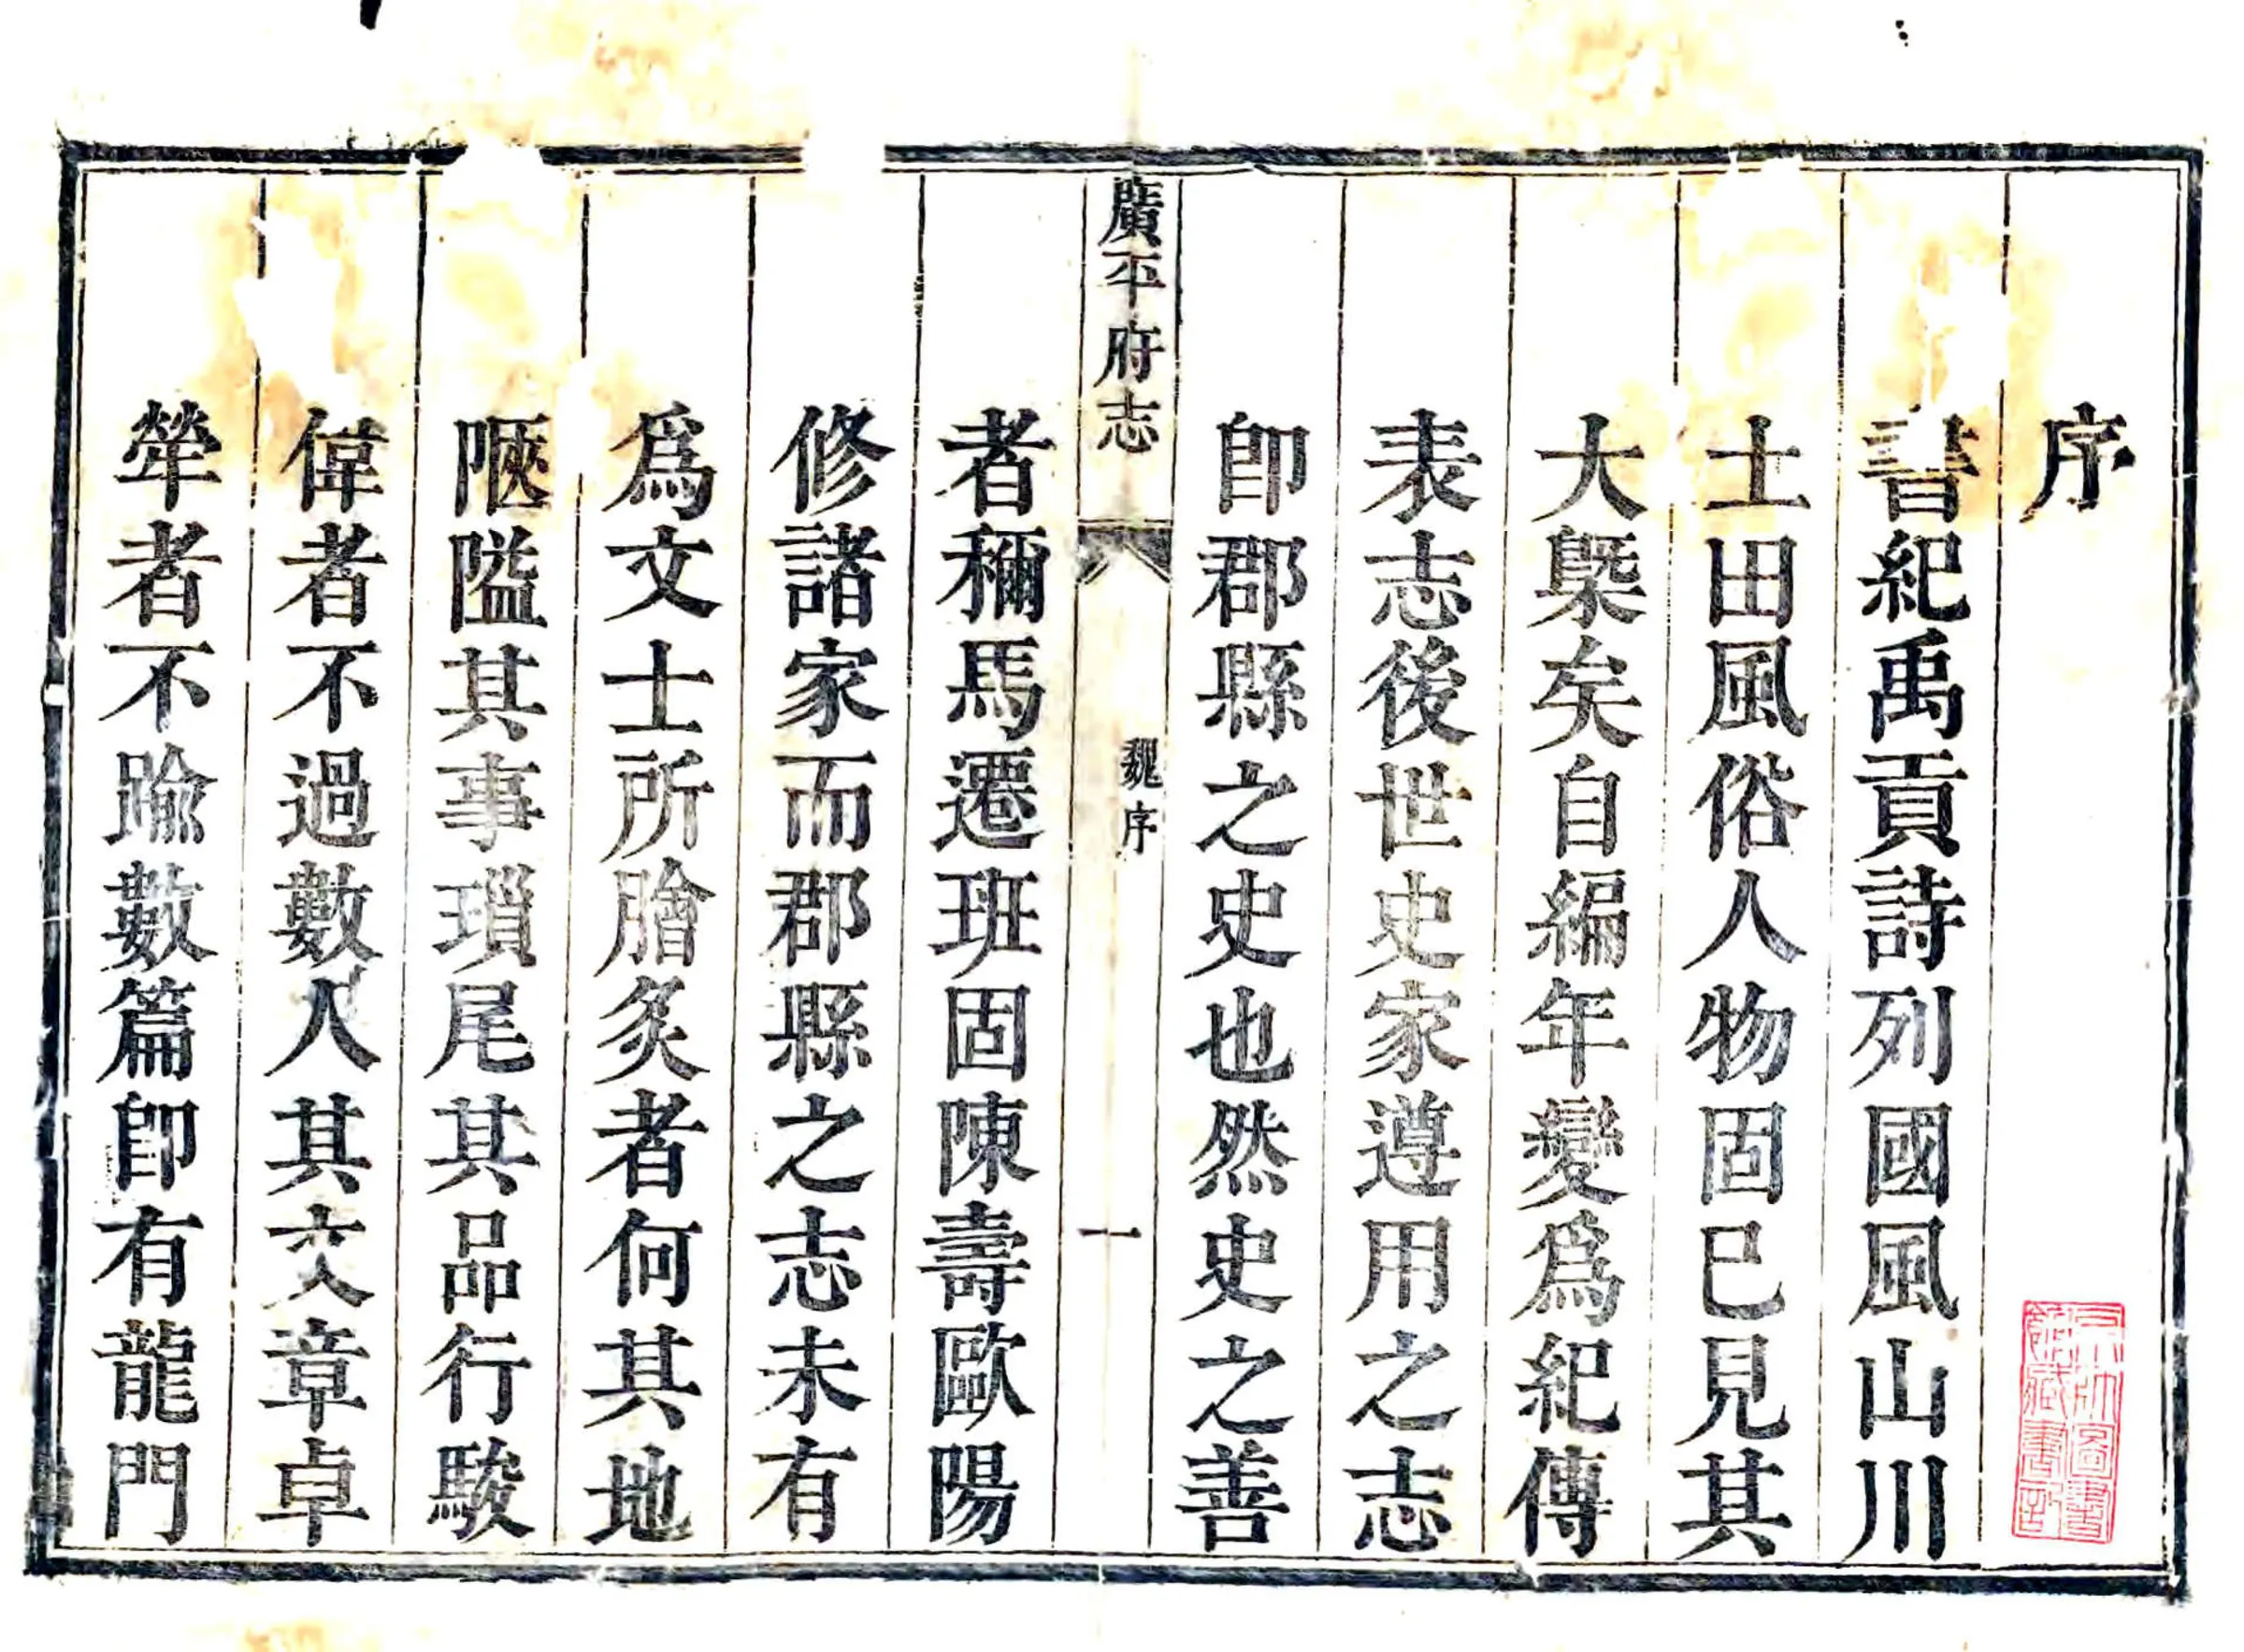 序
書紀禹貢詩列國風山川
土田風俗人物固已見其
大槩矣自編年變爲紀傳
表志後世史家遵用之志
卽郡縣之史也然史之善
廣平府志
魏序
一
者稱馬遷班固陳壽歐陽
修諸家而郡縣之志未有
爲文士所膾炙者何其地
陿隘其事瑣尾其品行駿
偉者不過數人其文章卓
犖者不踰數篇卽有龍門